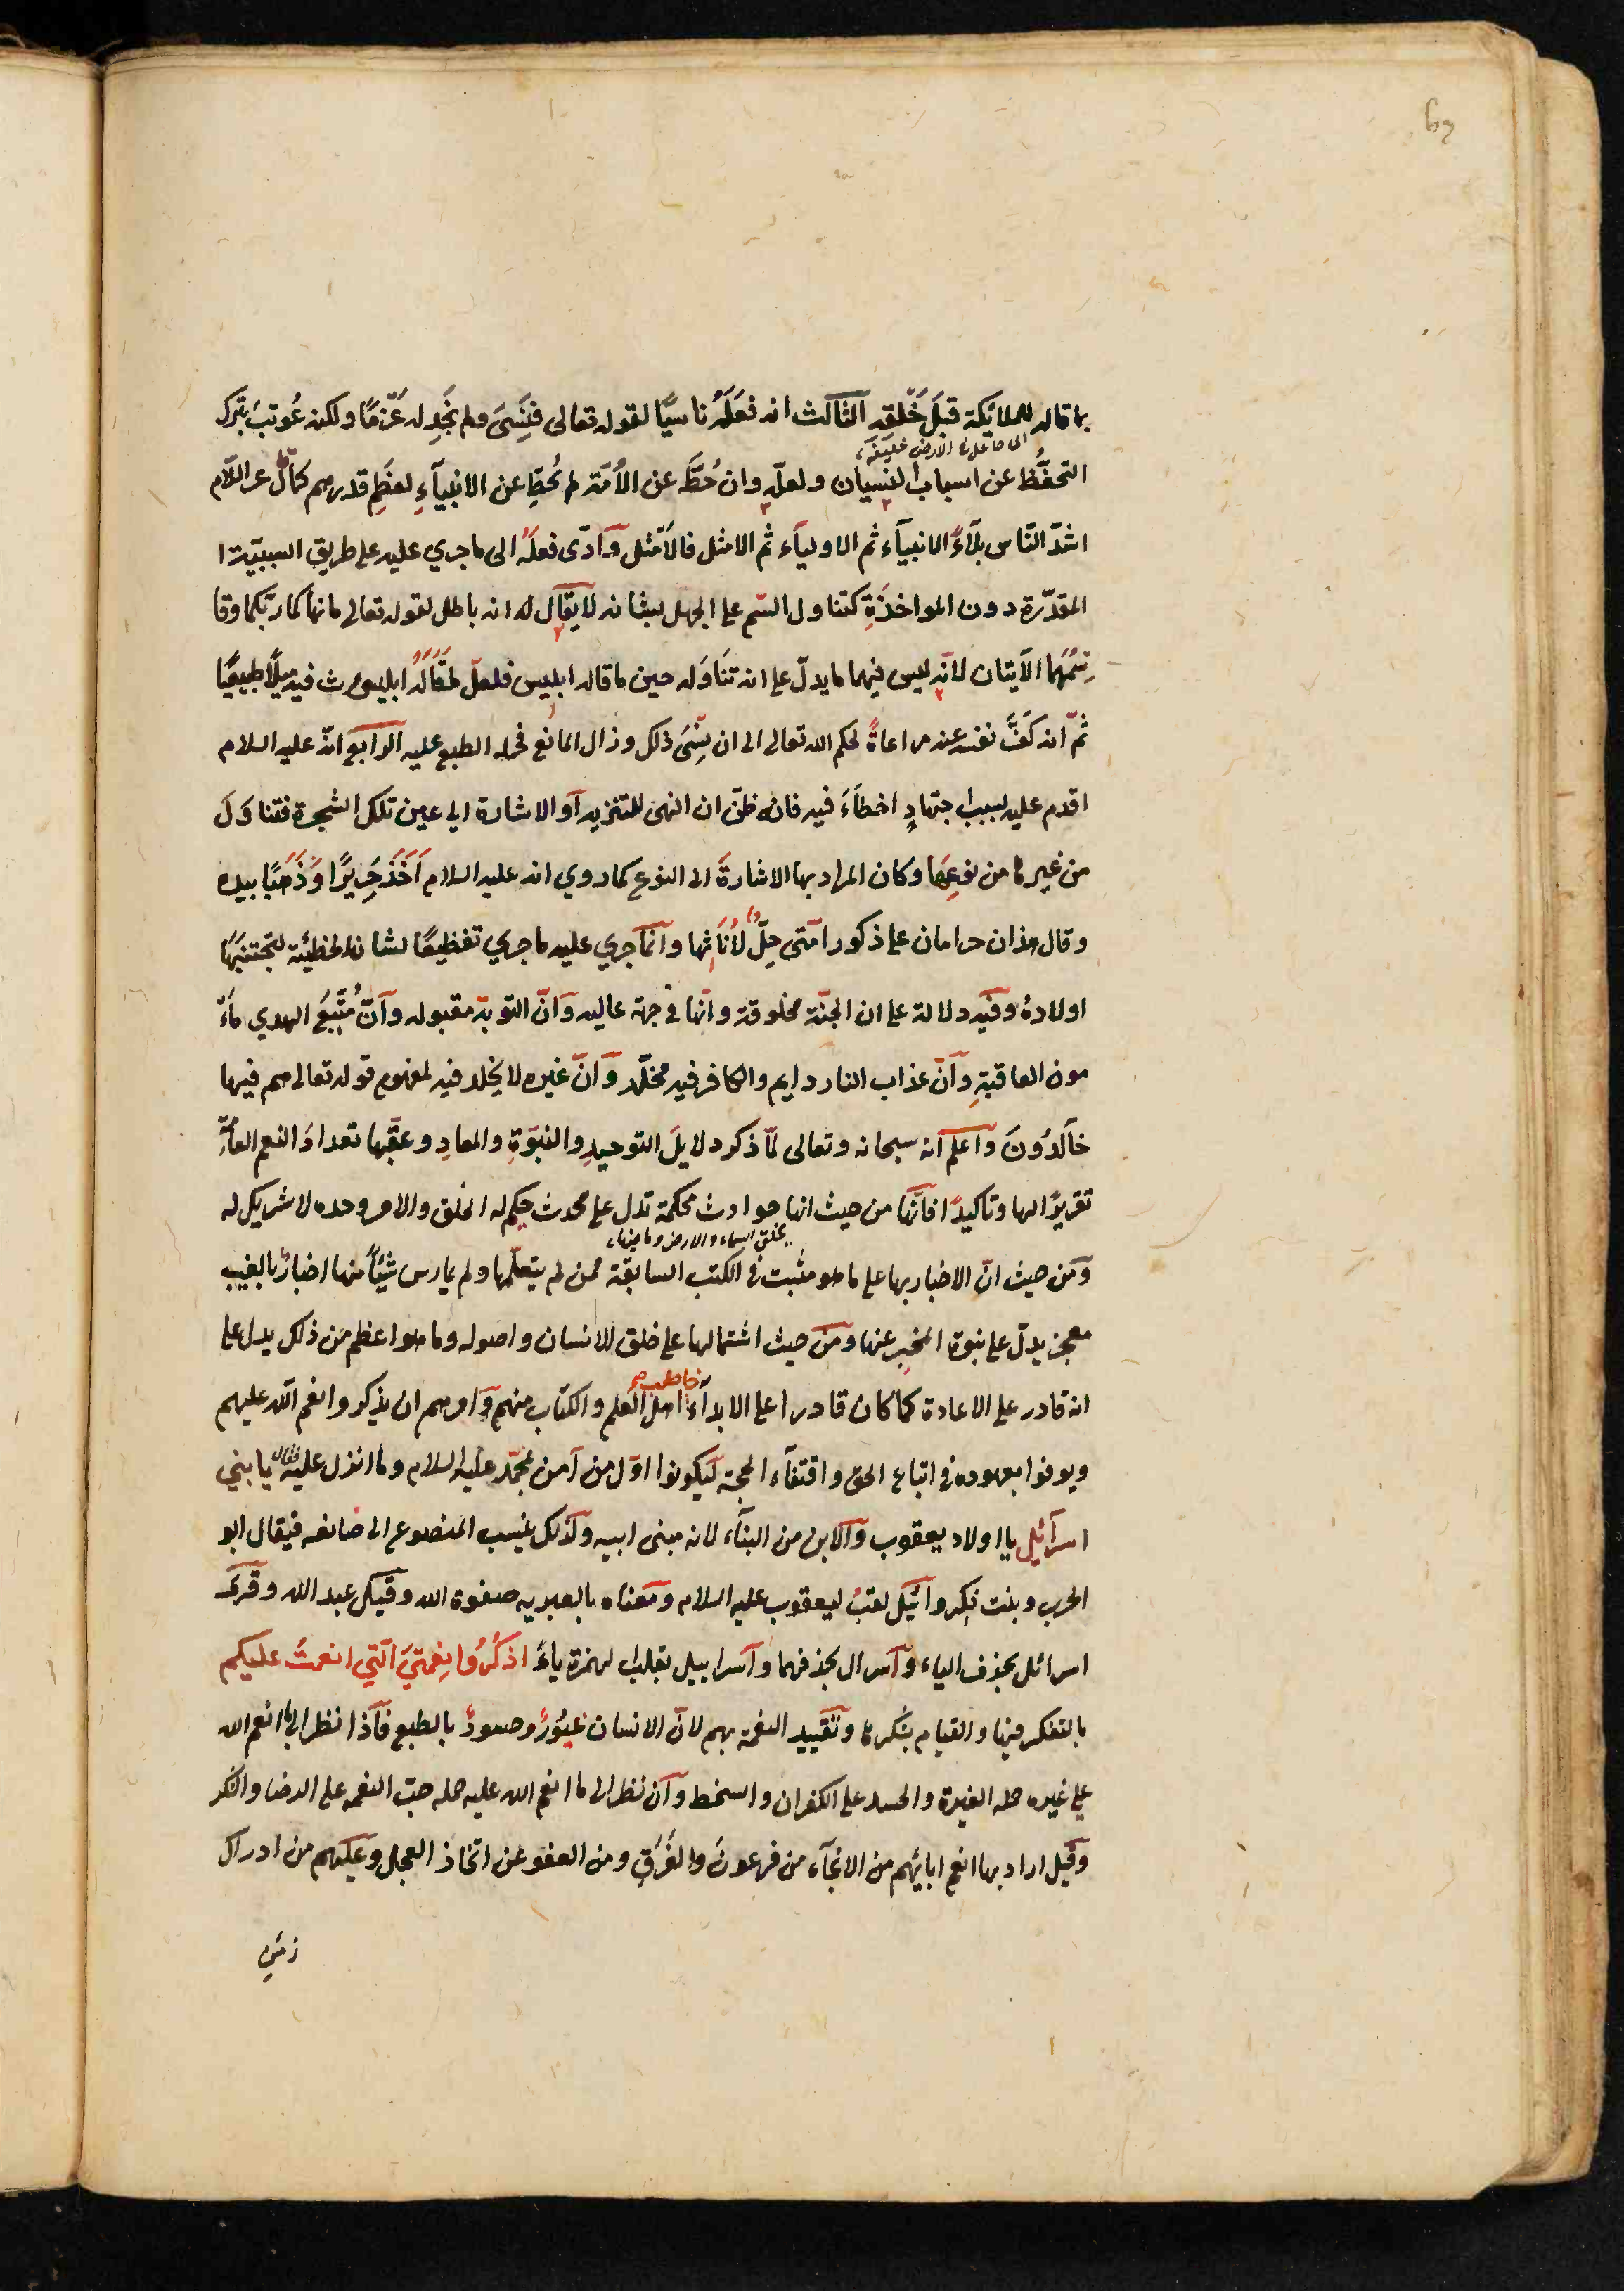 بما قاله للملائكة قبلَ خَلْقِه الثالث انه فَعَلَهُ ناسيًا لقوله تعالى فنَسِىَ ولم نَجِد له عَزمًا ولكنه عُوتِبَ بترك
انى جاعل فى الارض خليفة
التحفُّظ عن اسباب النسيان ولعلّه وان حُطَّ عن الأمّة لم يُحَطّ عن الانبيآءِ لعِظَمِ قدرهم كما قال عم اللّام
اشدّ النّاس بلآءً الانبيآء ثم الاوليآء ثم الامثل فالأمثل وَادّى فعلُهُ الى ما جري عليه على طريق السببيّة ا
المقدّرة دون المواخذَةِ كتناول السّم على الجهل بشانه لا يقال له انه باطل لقوله تعالى ما نهاكما ربّكما وقا
سَمَهُما الآيتان لانّه ليس فيهما ما يدلّ على انه تناوَله حين ما قاله ابليس فلعلّ مَقَالَهُ ابليس اورث فيه ميلًا طبيعيًا
ثمّ انه كَفَّ نفسه عنه مراعاةً لحكم الله تعالى الى ان نَسِىَ ذلك وزال المانع فحمله الطبع عليه الرابع انّه عليه السلام
اقدم عليه بسبب اجتهادٍ اخطآءَ فيه فانه ظنّ ان النهى للتنزيه او الاشارة الى عين تلك الشجرة فتناوَلَ
من غيرها من نوعِهَا وكان المراد بها الاشارةَ الى النوع كما روي انه عليه السلام اَخَذَ حَرِيرًا وَذَهَبًا بيده
وقال هذان حرامان على ذكور امتى حِلٌّ لأنَاثِها وانما جري عليه ما جري تفظيعًا لشان الخطيئة ليجتنبَهَا
اولادهُ وفيه دلالة على ان الجنّة مخلوقة وانّها في جهة عاليه وَانّ التوبة مقبوله وآنّ مُتَّبِعَ الهدي ماَ
مون العاقبةِ وآنّ عذاب النار دايم والكافر فيه مخلّد وَانّ غيره لا يخلد فيه لمفهوم قوله تعالى هم فيها
خالدُونَ واعلم انه سبحانه وتعالى لمّا ذكر دلايلَ التوحيدِ والنبوّةِ والمعادِ وعقّبها تعدادَ النعم العامّةِ
تقريرًا لها وتأكيدًا فانّها من حيث انها حوادث محكمة تدل على محدث حكيم له الخلق والامر وحده لا شريك له
بخلق السماء والارض وما فيها
ومَن حيث انّ الاخبار بها على ما هو مثبت في الكتب السابقة ممن لم يتعلّمها ولم يمارس شيئًا منها اخبارٌ بالغيب
معجز يدلّ على نبوة المخبِر عنها ومن حيث اشتمالها على خلق الانسان واصوله وما هوا عظم من ذلك يدل على
انه قادر على الاعادة كما كان قادرا على الابدآء خاطب اهل العلم والكتاب منهم وَامرهم ان يذكروا نعم الله عليهم
ويوفوا بعهوده في اتباع الحق واقتفآء الحجة ليكونوا اوّل من آمن بمحمّد عليه السلام وما انزل عليه فقال يا بني
اسرآئيل يا اولاد يعقوب والابن من البنآء لانه مبنى ابيه ولذلك ينسب المصنوع الى صانعه فيقال ابو
الحرب وبنت فكر واسرآئيل لقبُ ليعقوب عليه السلام ومعناه بالعبريه صفوة الله وقيل عبد الله وقرئ
اسرائل بحذف الياء وآسرال بحذفهما وآسراييل بقلب الهمزة ياءً اذكُرُوا نِعْمَتِىَ الّتِي انعمتُ عليكم
بالتفكر فيها والقيام بشكرها وتقييد النعمة بهم لانّ الانسان غيُورٌ وحسودٌ بالطبع فآذا نظر الى ما انعم الله
على غيره حمله الغيرة والحسد على الكفران والسخط وآن نظر الى ما انعم الله عليه حمله حبّ النعمه على الرضا والشكر
وقيل اراد بها ما انعم ابايئهم من الانجآء من فرعونَ والغَرَقِ ومن العفو عن اتخاذ العجل وعليهم من ادراك
زمن